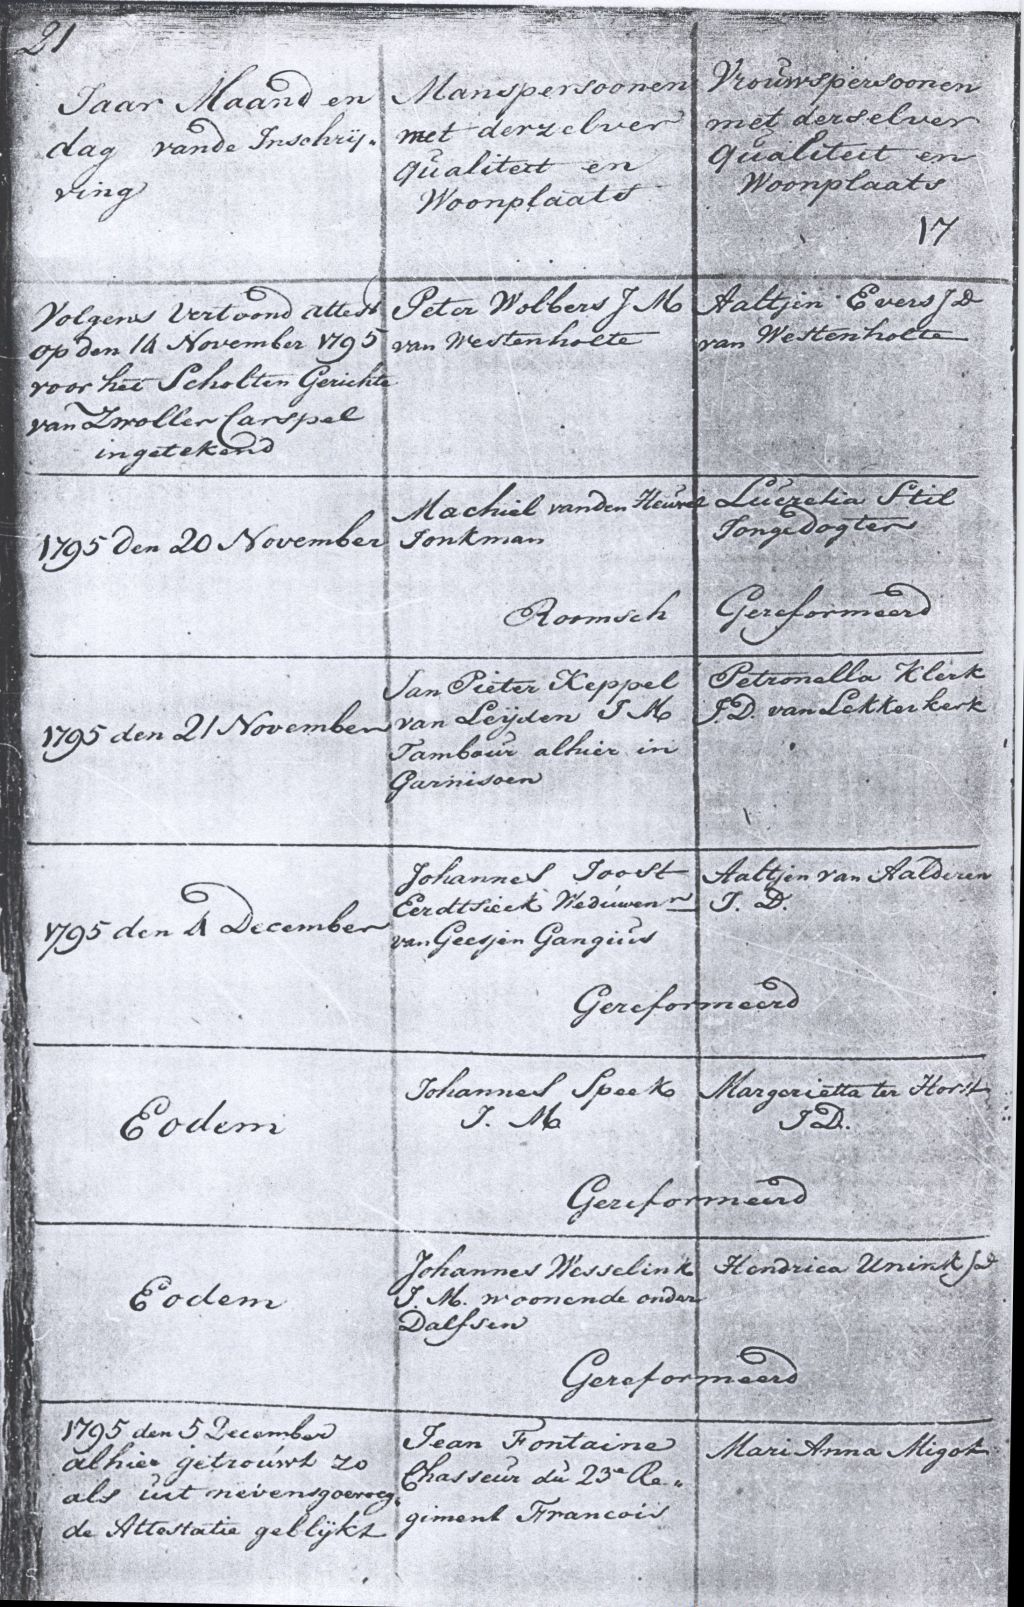 21
Jaar Maand en
dag vande Inschrij„
ving
Manspersoonen
met derzelver
qualiteit en
Woonplaats
Vrouwspersoonen
met derselver
qualiteit en
Woonplaats
17
Volgens Vertoond attest
op den 14 November 1795
voor het Scholten Gerichte
van Zwoller Carspel
ingetekend
Peter Wolbers J M
van Westenholte
Aaltjen Evers J D
van Westenholte
1795 den 20 November
Machiel vanden Heuvel
Jonkman
Roomsch
Lucretia Stil
Jonge Dogter
Gereformeerd
1795 den 21 November
Jan Pieter Keppel
van Leijden J M
Tambour alhier in
Garnisoen
Petronella Klerk
J. D. van Lekkerkerk
1795 den 4 December
Johannes Joost
Eerdtsieck Weduwenr
van Geesjen Gangius
Aaltjen van Aalderen
J. D.
Gereformeerd
Eodem
Johannes Speek
J. M
Margerietta ter Horst
J D.
Gereformeerd
Eodem
Johannes Wesselink
J. M. woonende onder
Dalfsen
Hendrica Unink J D
Gereformeerd
1795 den 5 December
alhier getrouwt zo
als uit nevensgevoeg„
de Attestatie geblijkt
Jean Fontaine
Chasseur du 23e Re„
giment Francois
Mari Anna Migot